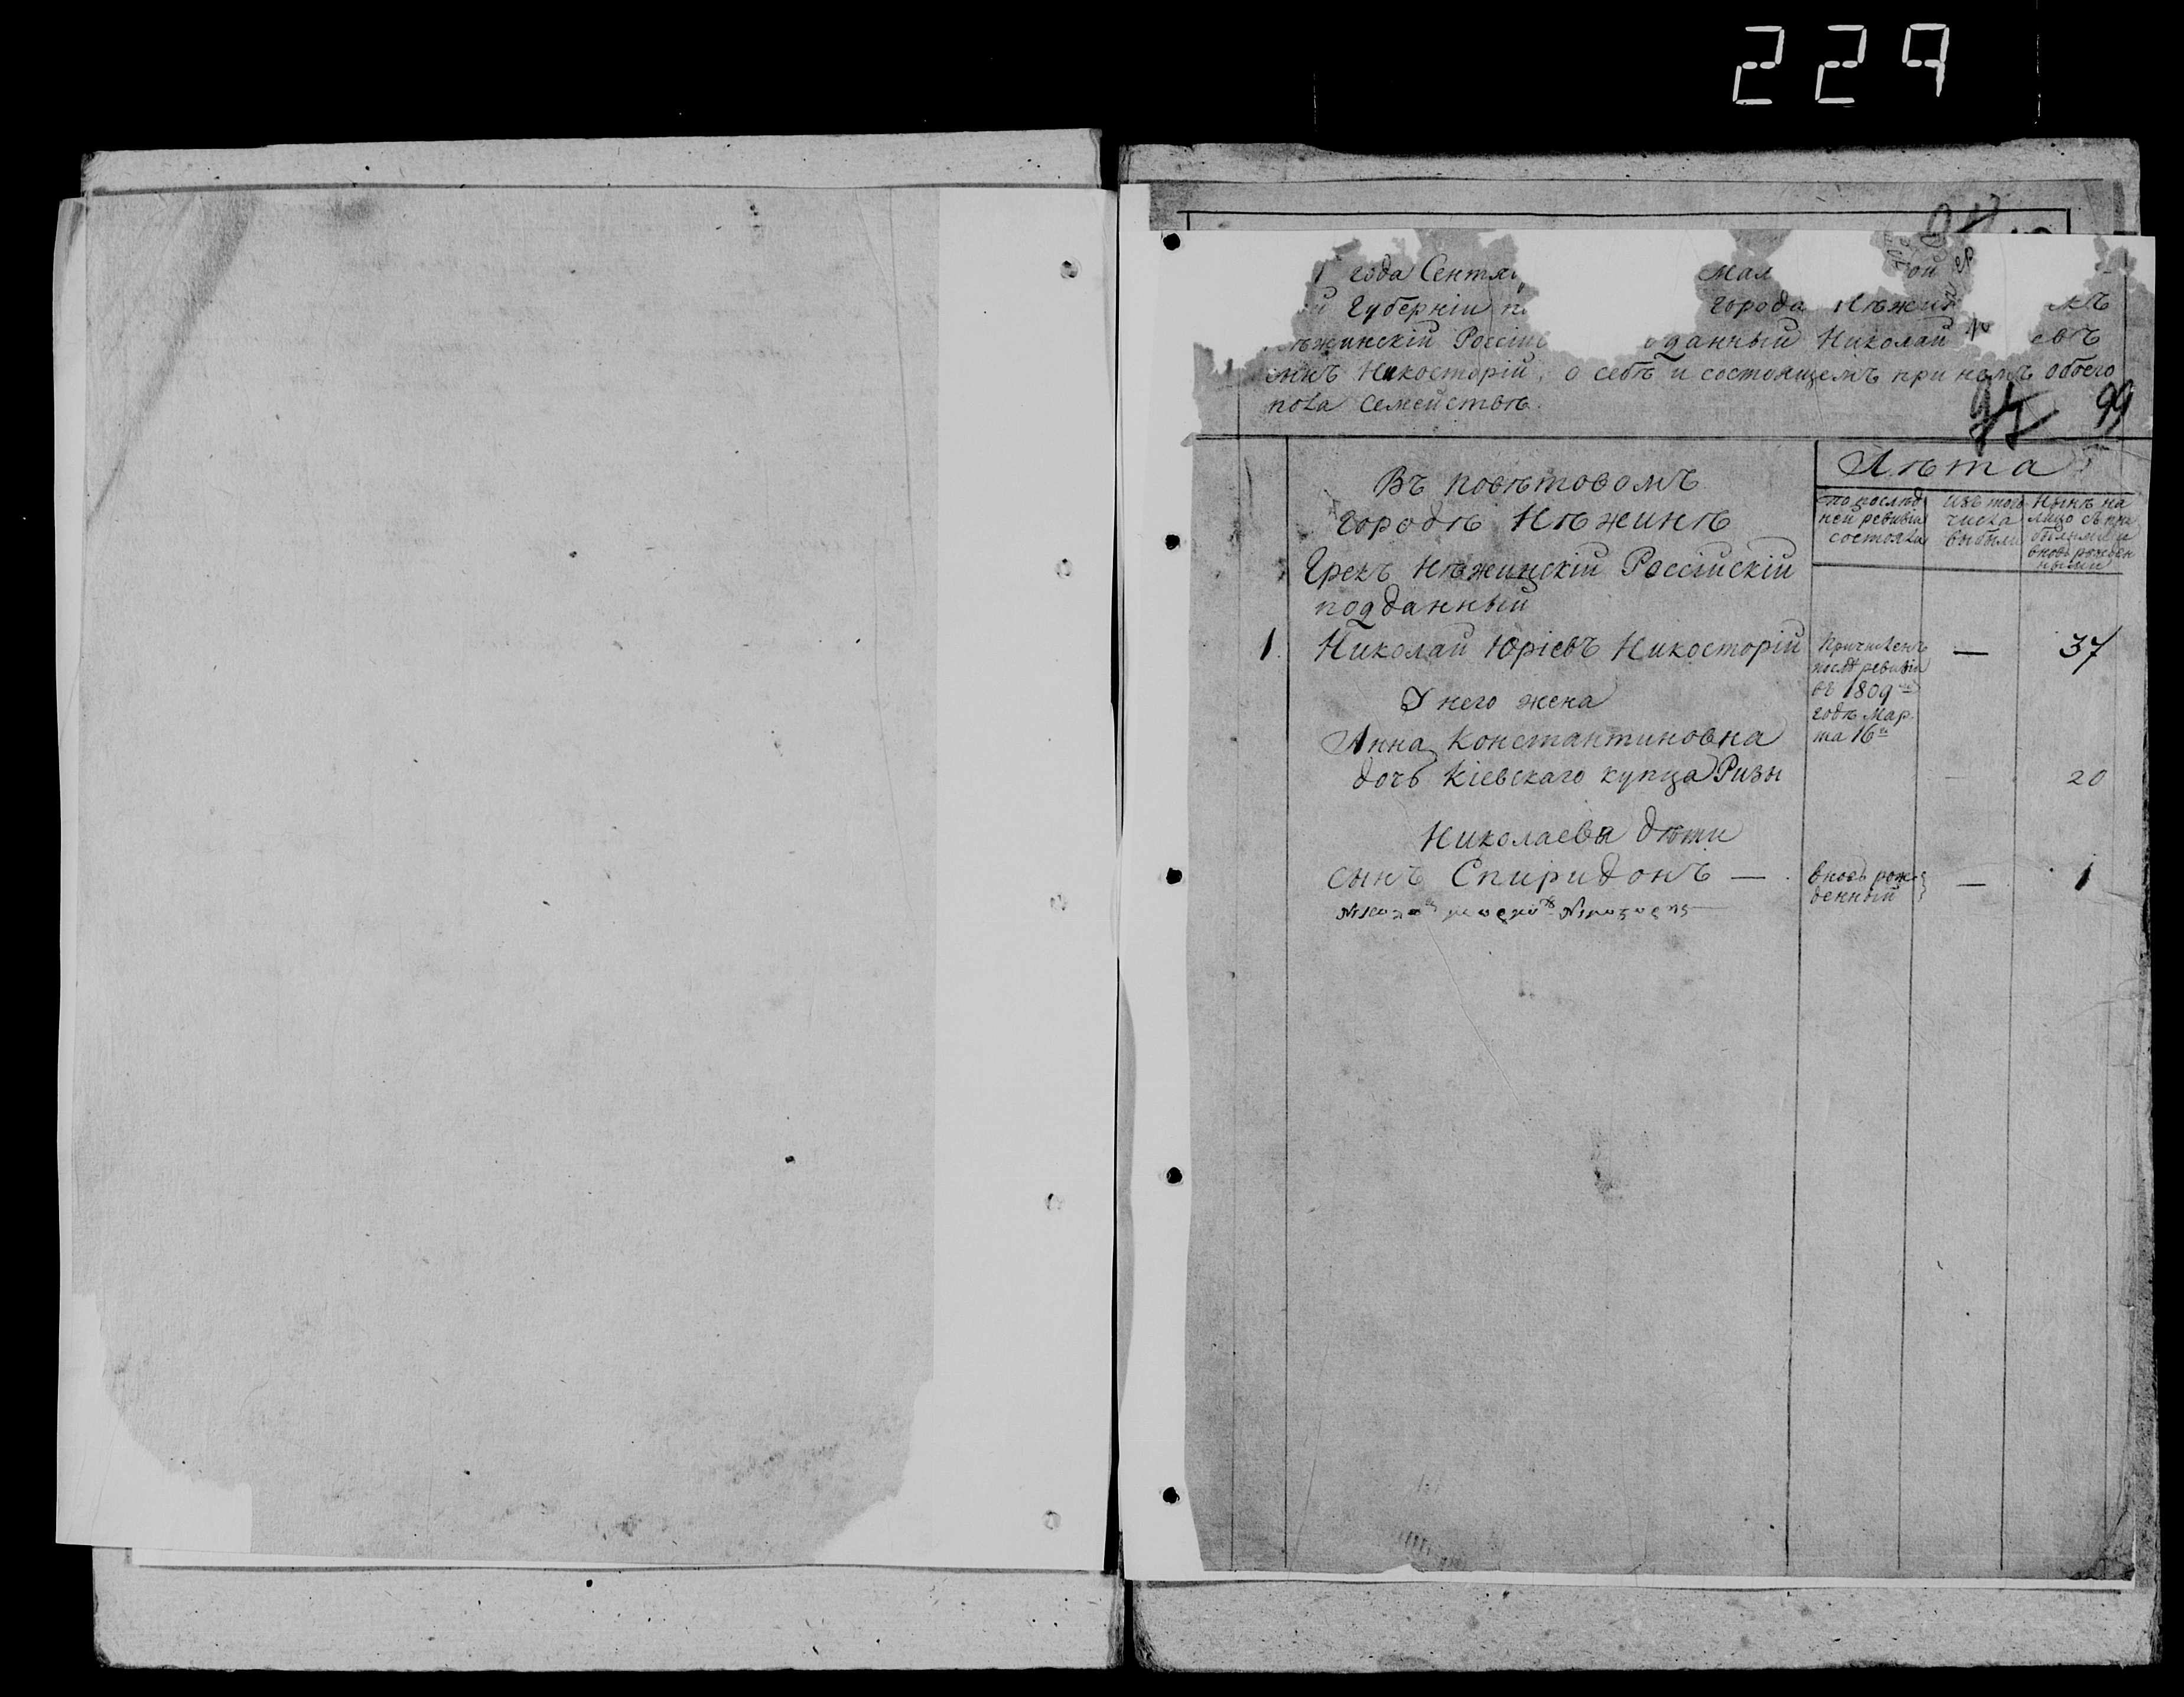 229
года Сентя мал ой
й Губерніи п города Нѣжин мъ
ѣжинскій Россій одданный Николай Юр евъ
сынъ Никосторій, о себѣ и состоящемъ при немъ обоего
пола семействѣ.
99
Лѣта
Въ повѣтовомъ
городѣ Нѣжинѣ
По послѣд
ней ревизіи
состояло
Изъ того
числа
выбыли
Нынѣ на
лицо съ при
былыми и
вновь рожден
ными
Грекъ Нѣжинскій Россійскій
подданный
1. Николай Юріевъ Никосторій
Причисленъ
послѣ ревизіи
въ 1809
годѣ Мар
та 16
— 37
У него жена
Анна Константиновна
дочь Кіевскаго купца Ризы
— 20
Николаевы дѣти
сынъ Спиридонъ —
вновь рож
денный
— 1